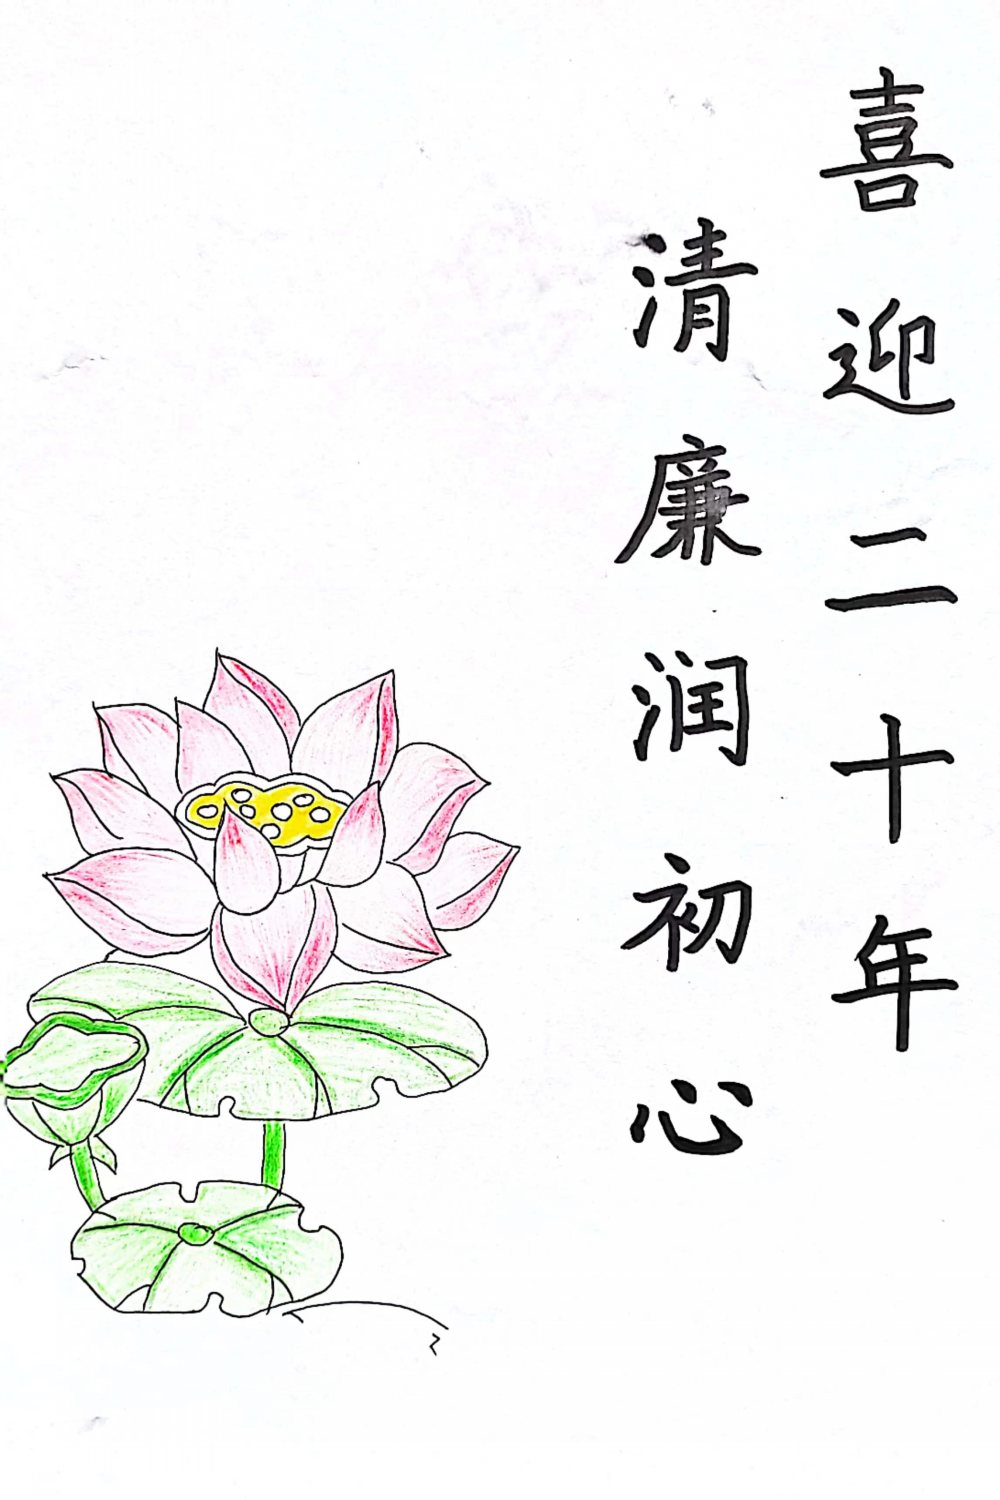 喜迎二十年
清廉润初心